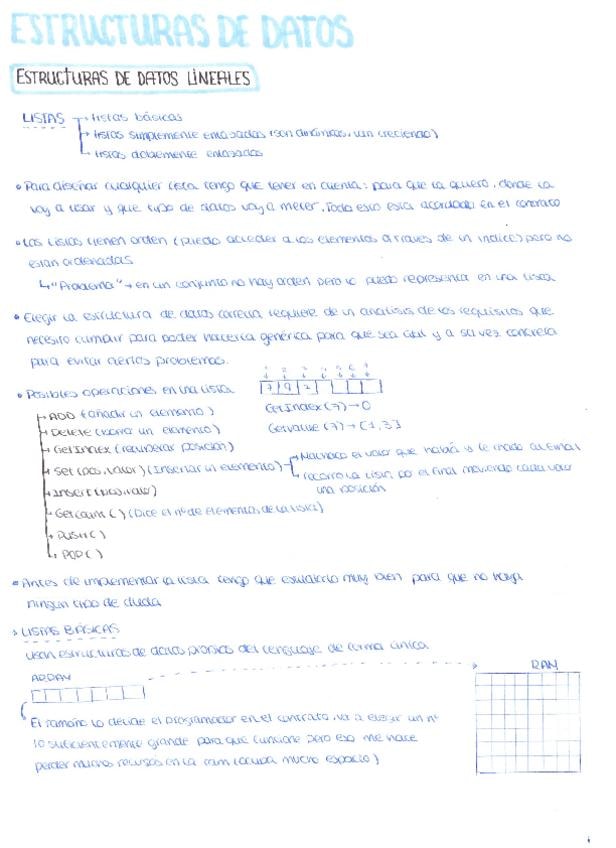 ESTRUCTURAS DE DATOS
ESTRUCTURAS DE DATOS LINEALES
LISTAS → listas básicas
→ listas simplemente enlazadas (son dinámicas, van creciendo)
→ listas doblemente enlazadas
• Para diseñar cualquier lista tengo que tener en cuenta: para que la quiero, donde la
voy a usar y que tipo de datos voy a meter. Todo esto esta acordado en el contrato
• Las listas tienen orden (puedo acceder a los elementos a traves de un indice) pero no
estan ordenadas
↳ "Problema" → en un conjunto no hay orden pero lo puedo representa en una lista
• Elegir la estructura de datos correcta requiere de un analisis de los requisitos que
necesito cumplir para poder hacerla genérica para que sea útil y a su vez concreta
para evitar ciertos problemas.
• Posibles operaciones en una lista
7 9 2
→ ADD (añadir un elemento) GetIndex (7) → 0
→ Delete (borra un elemento) Getvalue (7) → [1,3]
→ GetIndex (recuperar posición)
→ Set (pos, valor) (Insertar un elemento) → Machaco el valor que había y le mando al final
→ recorro la lista por el final moviendo cada valor
una posición
→ Insert (pos, valor)
→ Getcount () (Dice el nº de elementos de la lista)
→ PUSH ()
→ POP ()
• Antes de implementar la lista tengo que estudiarlo muy bien para que no haya
ningún tipo de duda
> LISTAS BÁSICAS
usan estructuras de datos propias del lenguaje de forma única
ARRAY RAM
El tamaño lo decide el programador en el contrato, va a elegir un nº
lo suficientemente grande para que funcione pero eso me hace
perder muchos recursos en la ram (ocupa mucho espacio)